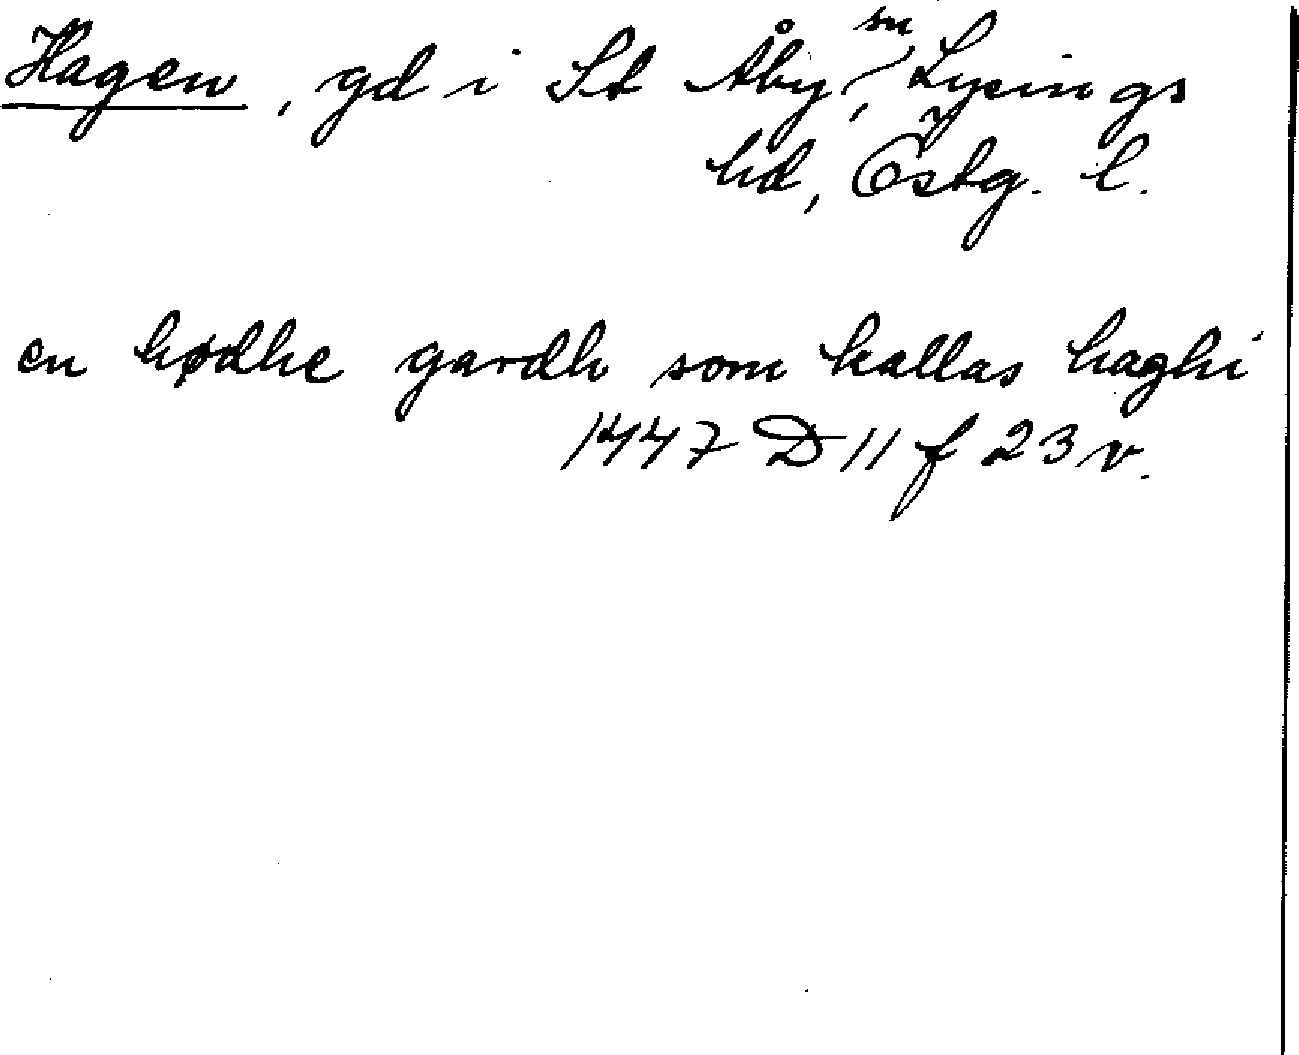 Hagen, gd i St Åby sn, Lysings
hd, Östg. l.
en hødhe gardh som kallas haghi
1447 D 11 f 23 v.